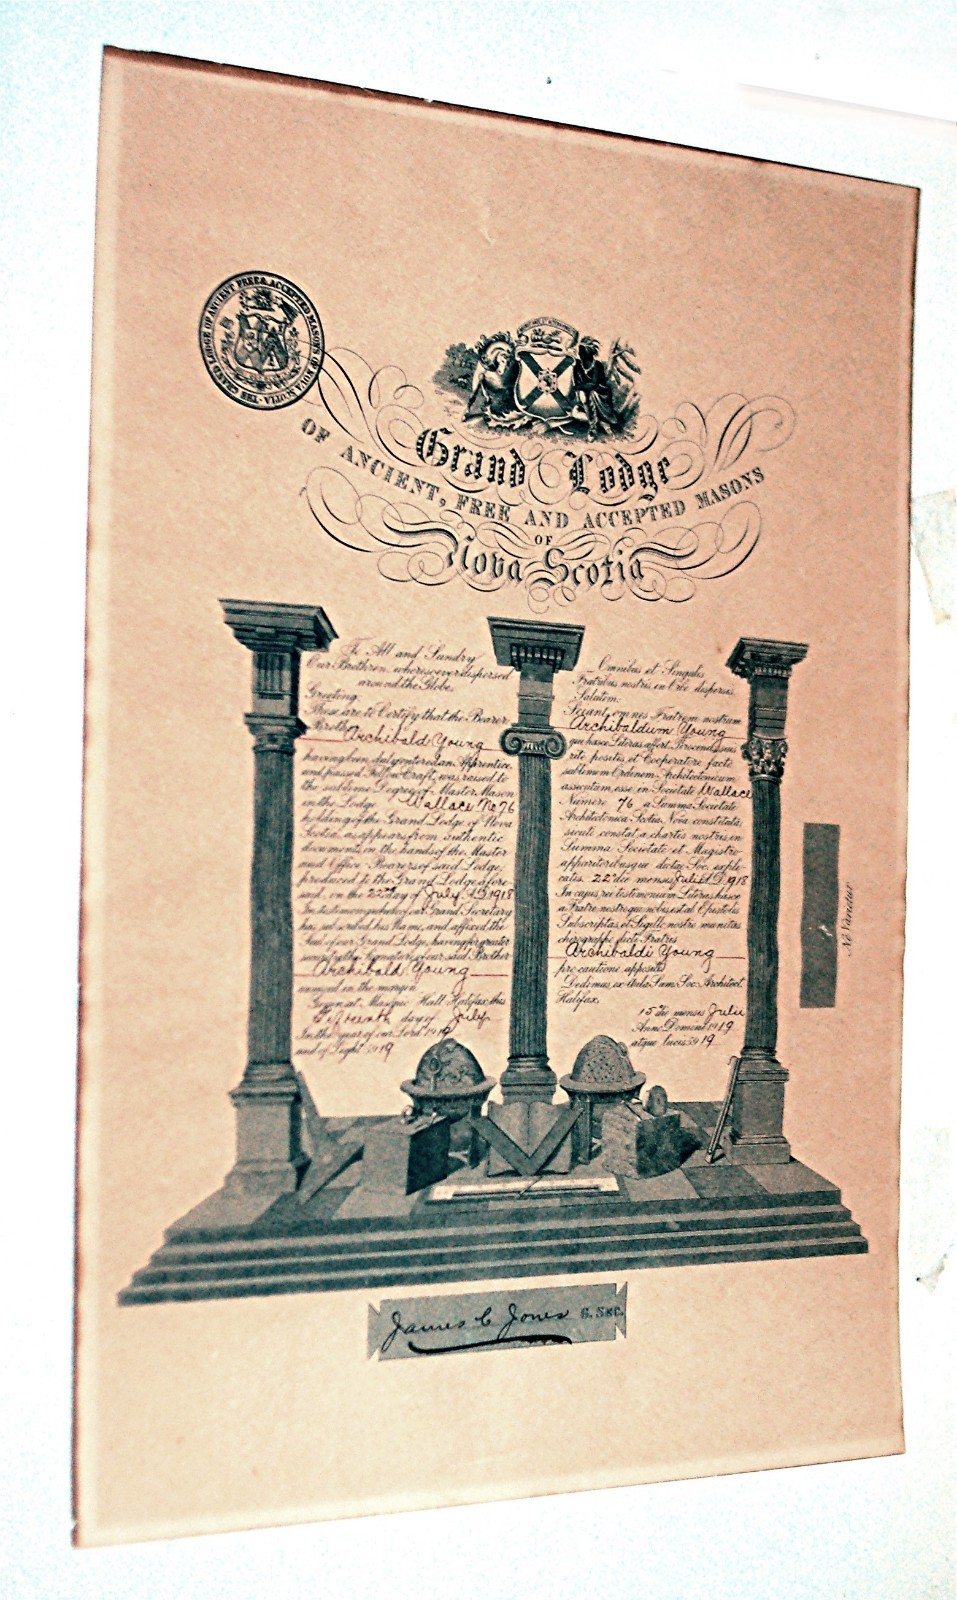 THE GRAND LODGE OF ANCIENT FREE & ACCEPTED MASONS OF NOVA SCOTIA
Grand Lodge
OF ANCIENT, FREE AND ACCEPTED MASONS
OF
Nova Scotia
To All and Sundry
Our Brethren, wheresoever dispersed
around the Globe,
Greeting:
These are to Certify that the Bearer
Brother Archibald Young
having been duly entered an Apprentice
and passed Fellow Craft, was raised to
the sublime Degree of Master Mason
in the Lodge Wallace No 76
holding of the Grand Lodge of Nova
Scotia, as appears from authentic
documents in the hands of the Master
and Office Bearers of said Lodge,
produced to the Grand Lodge afore-
said, on the 22nd day of July AD 1918
In testimony whereof our Grand Secretary
has subscribed his Name, and affixed the
Seal of our Grand Lodge, having for greater
security the Signature of our said Brother
Archibald Young
annexed in the margin
Given at Masonic Hall Halifax, this
Fifteenth day of July
In the year of our Lord 1919
and of Light 5919
Omnibus et Singulis
Fratribus nostris, in Orbe dispersis
Salutem.
Sciant omnes Fratrem nostrum
Archibaldum Young
qui hasce Literas affert, Processionis
rite positis et Cooperatore facto
sublimem Ordinem Architectonicum
assecutum esse in Societate Wallace
Numero 76 a Summa Societate
Architectonica Scotiæ Novæ constituta
sicuti constat a chartis nostris in
Summa Societate et Magistro
apparitoribusque dictæ Soc. expli-
catis. 22 die mensis Julii A.D. 1918
In cujus rei testimonium Literas hasce
a Fratre nostro qui nobis est ab Epistolis
Subscriptas et Sigillo nostro munitas
chirographo dicti Fratris
Archibaldi Young
pro cautione apposito
Dedimus ex Aula Sum. Soc. Architect
Halifax,
15 die mensis Julii
Anno Domini 1919
atque Lucis 5919
Ne Varietur
James C Jones G. SEC.